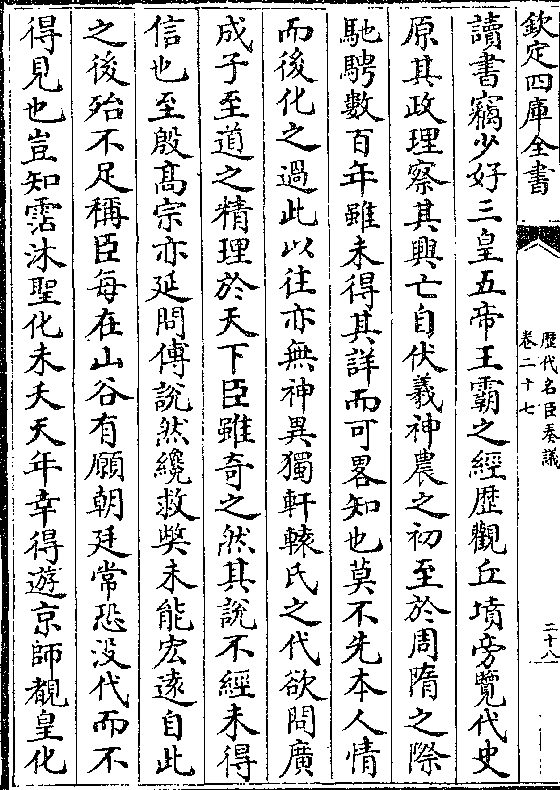 欽定四庫全書
歷代名臣奏議
卷二十七
二十八
讀書竊少好三皇五帝王霸之經歷觀丘墳旁覽代史
原其政理察其興亡自伏羲神農之初至於周隋之際
馳騁數百年雖未得其詳而可畧知也莫不先本人情
而後化之過此以往亦無神異獨軒轅氏之代欲問廣
成子至道之精理於天下臣雖奇之然其說不經未得
信也至殷髙宗亦延問傅說然纔救獘未能宏遠自此
之後殆不足稱臣每在山谷有願朝廷常恐没代而不
得見也豈知霑沐聖化未夭天年幸得遊京師覩皇化